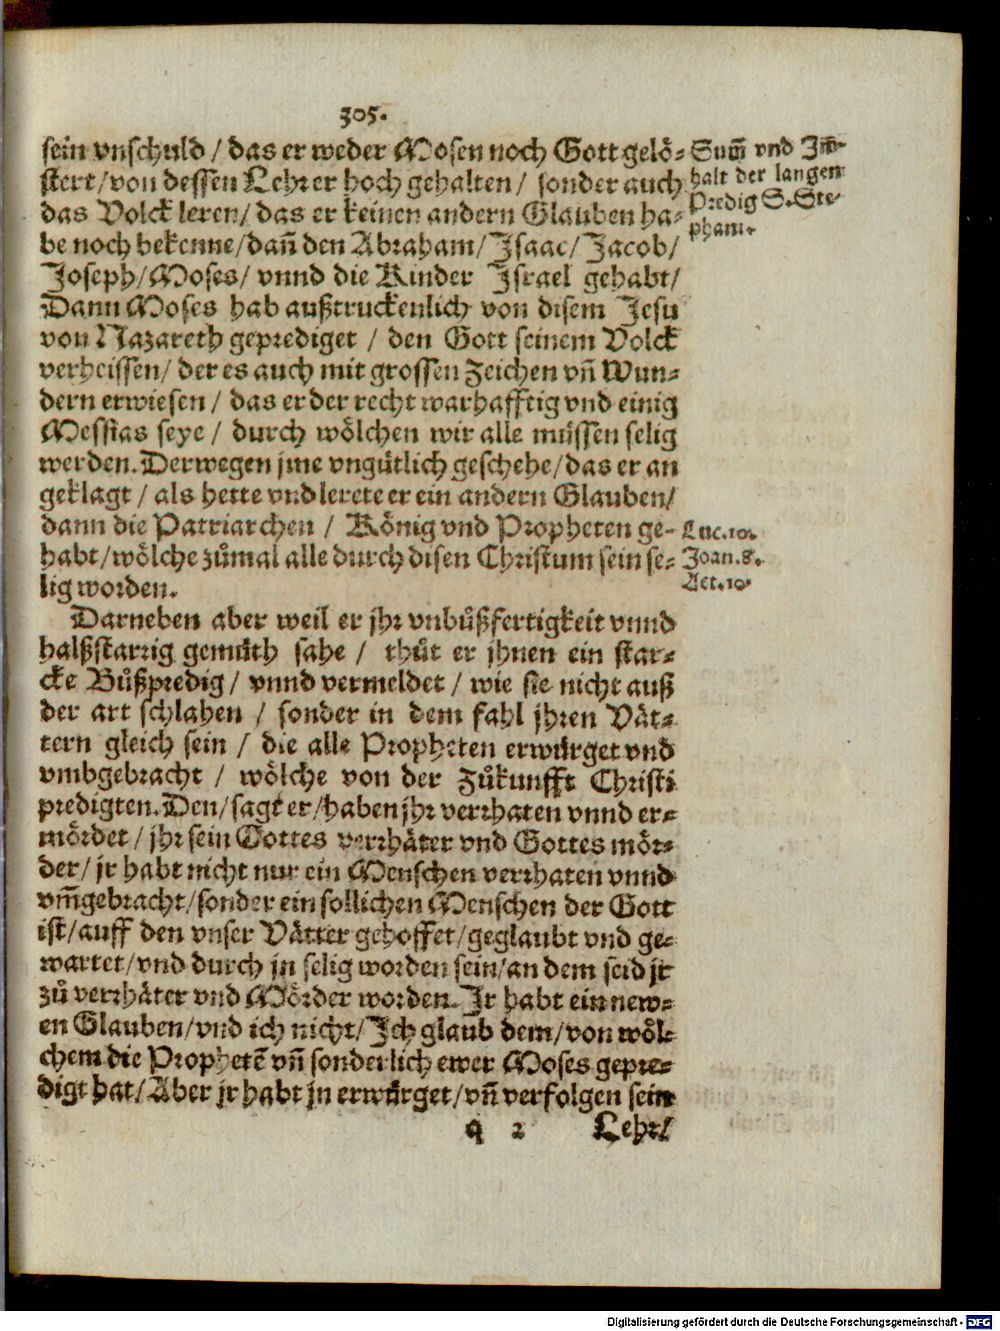 305.
sein vnschuld / das er weder Mosen noch Gott gelö-
stert / von dessen Lehr er hoch gehalten / sonder auch
das Volck leren / das er keinen andern Glauben ha-
be noch bekenne / dañ den Abraham / Isaac / Jacob /
Joseph / Moses / vnnd die Kinder Israel gehabt /
Dann Moses hab außtruckenlich von disem Jesu
von Nazareth geprediget / den Gott seinem Volck
verheissen / der es auch mit grossen Zeichen vñ Wun-
dern erwiesen / das er der recht warhafftig vnd einig
Messias seye / durch wölchen wir alle müssen selig
werden. Derwegen jme vngütlich geschehe / das er an
geklagt / als hette vnd lerete er ein andern Glauben /
dann die Patriarchen / König vnd Propheten ge-
habt / wölche zůmal alle durch disen Christum sein se-
lig worden.
Summ̃ vnd In-
halt der langen
Predig S. Ste-
phani.
Luc. 10.
Joan. 8.
Act. 10.
Darneben aber weil er jhr vnbůßfertigkeit vnnd
halßstarrig gemüth sahe / thůt er jhnen ein star-
cke Bůßpredig / vnnd vermeldet / wie sie nicht auß
der art schlahen / sonder in dem fahl jhren Vät-
tern gleich sein / die alle Propheten erwürget vnd
vmbgebracht / wölche von der Zůkunfft Christi
predigten. Den / sagt er / haben jhr verrhaten vnnd er-
mördet / jhr sein Gottes verrhäter vnd Gottes mör-
der / jr habt nicht nur ein Menschen verrhaten vnnd
vm̃gebracht / sonder ein sollichen Menschen der Gott
ist / auff den vnser Vätter gehoffet / geglaubt vnd ge-
wartet / vnd durch jn selig worden sein / an dem seid jr
zů verrhäter vnd Mörder worden. Jr habt ein new-
en Glauben / vnd ich nicht / Ich glaub dem / von wöl-
chem die Prophetẽ vñ sonderlich ewer Moses gepre-
digt hat / Aber jr habt jn erwürget / vñ verfolgen sein
q 2 Lehr /
Digitalisierung gefördert durch die Deutsche Forschungsgemeinschaft - DFG